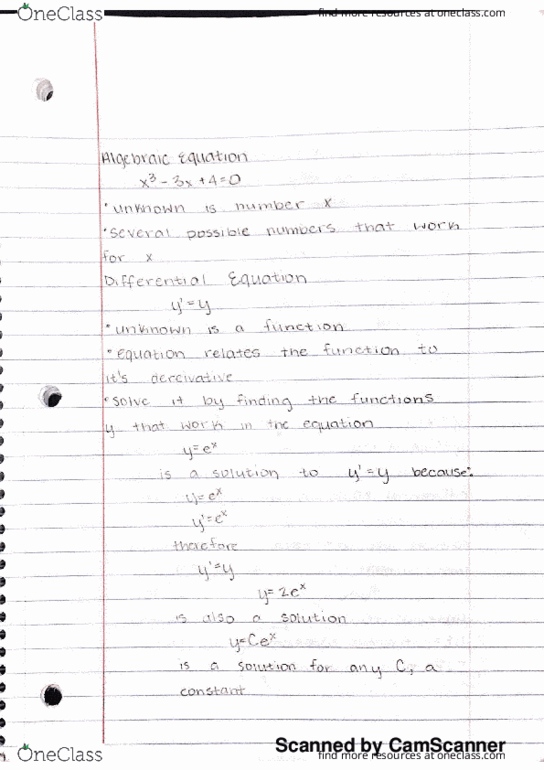 OneClass
find more resources at oneclass.com
Algebraic Equation
x³ - 3x + 4 = 0
• unknown is number x
• several possible numbers that work
for x
Differential Equation
y' = y
• unknown is a function
• equation relates the function to
it's dercivative
• solve it by finding the functions
y that work in the equation
y = eˣ
is a solution to y' = y because:
y = eˣ
y' = eˣ
therefore
y' = y
y = 2eˣ
is also a solution
y = Ceˣ
is a solution for any C, a
constant
Scanned by CamScanner
OneClass
find more resources at oneclass.com